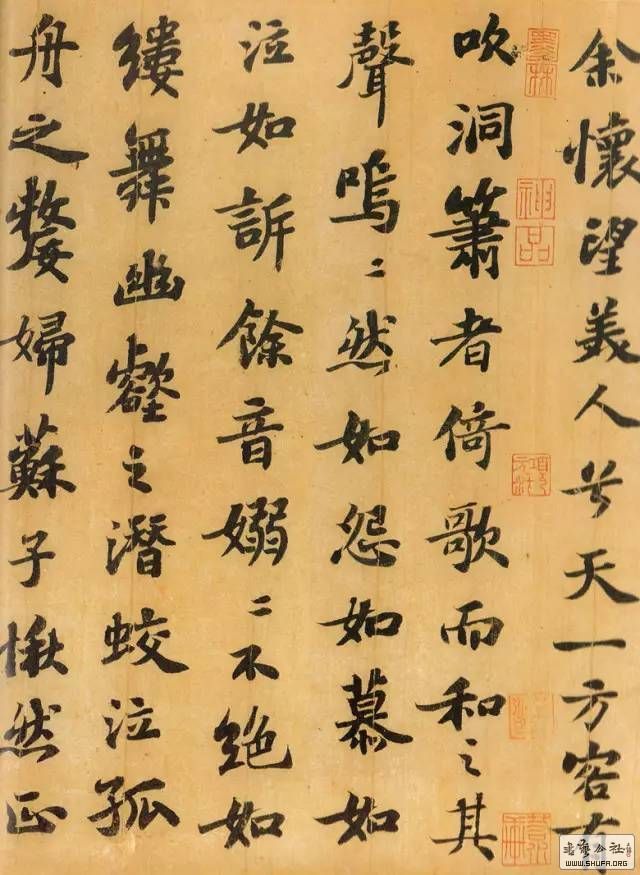 余懷望美人兮天一方客有
吹洞簫者倚歌而和之其
聲嗚〻然如怨如慕如
泣如訴餘音嫋〻不絕如
縷舞幽壑之潛蛟泣孤
舟之嫠婦蘇子愀然正
墨林
神品
書藝公社
WWW.SHUFA.ORG